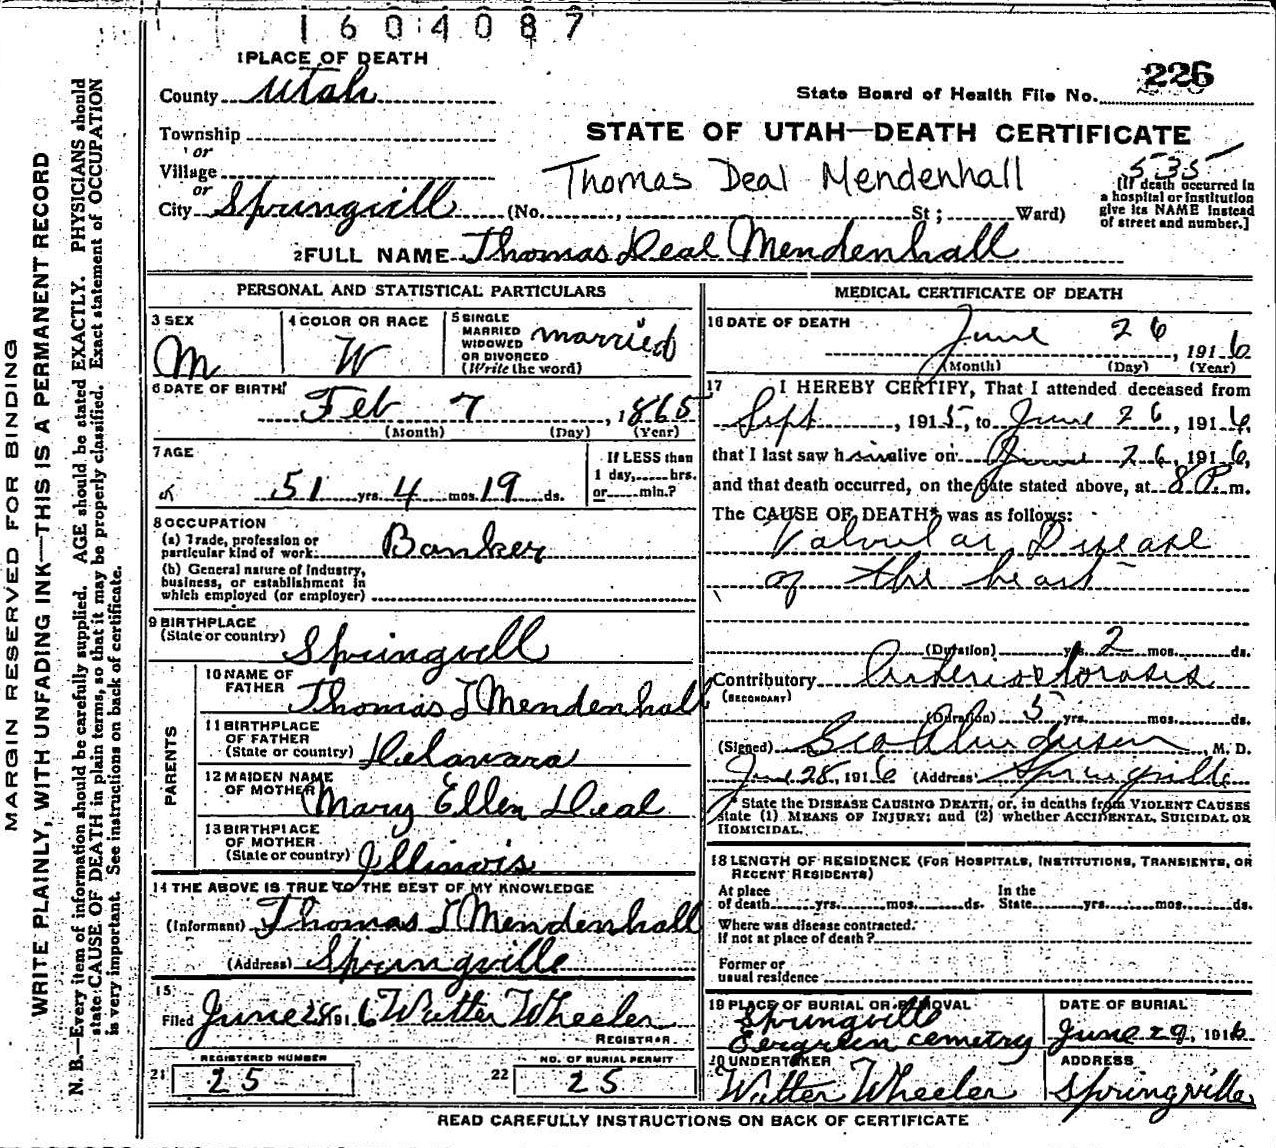 1604087
1 PLACE OF DEATH
County Utah
226
State Board of Health File No.
Township
or
Village
or
City Springvill (No. , St; Ward)
STATE OF UTAH—DEATH CERTIFICATE
Thomas Deal Mendenhall
535
[If death occurred in
a hospital or institution
give its NAME instead
of street and number.]
2 FULL NAME Thomas Deal Mendenhall
PERSONAL AND STATISTICAL PARTICULARS
3 SEX
M
4 COLOR OR RACE
W
5 SINGLE
MARRIED
WIDOWED
OR DIVORCED
(Write the word)
married
6 DATE OF BIRTH
Feb 7, 1865
(Month) (Day) (Year)
7 AGE
51 yrs. 4 mos. 19 ds.
If LESS than
1 day, hrs.
or min.?
8 OCCUPATION
(a) Trade, profession or
particular kind of work: Banker
(b) General nature of Industry,
business, or establishment in
which employed (or employer)
9 BIRTHPLACE
(State or country) Springvell
PARENTS
10 NAME OF
FATHER Thomas T Mendenhall
11 BIRTHPLACE
OF FATHER
(State or country) Delawara
12 MAIDEN NAME
OF MOTHER Mary Ellen Deal
13 BIRTHPLACE
OF MOTHER
(State or country) Illinois
14 THE ABOVE IS TRUE TO THE BEST OF MY KNOWLEDGE
(Informant) Thomas T Mendenhall
(Address) Springville
15
Filed June 28 1916 Walter Wheeler
REGISTRAR.
REGISTERED NUMBER
21 25
NO. OF BURIAL PERMIT
22 25
MEDICAL CERTIFICATE OF DEATH
16 DATE OF DEATH
June 26, 1916
(Month) (Day) (Year)
17 I HEREBY CERTIFY, That I attended deceased from
Sept, 1915, to June 26, 1916,
that I last saw him alive on June 26, 1916,
and that death occurred, on the date stated above, at 8 P. m.
The CAUSE OF DEATH* was as follows:
Valvular Disease
of the heart
(Duration) yrs. 2 mos. ds.
Contributory Arteriosclorosis
(SECONDARY)
(Duration) 5 yrs. mos. ds.
(Signed) Geo , M. D.
June 28, 1916 (Address) Springville
* State the DISEASE CAUSING DEATH, or, in deaths from VIOLENT CAUSES
state (1) MEANS OF INJURY; and (2) whether ACCIDENTAL, SUICIDAL OR
HOMICIDAL.
18 LENGTH OF RESIDENCE (FOR HOSPITALS, INSTITUTIONS, TRANSIENTS, OR
RECENT RESIDENTS)
At place
of death yrs. mos. ds.
In the
State yrs. mos. ds.
Where was disease contracted,
if not at place of death?
Former or
usual residence
19 PLACE OF BURIAL OR REMOVAL
Springville
Evergreen cemetry
DATE OF BURIAL
June 29, 1916
20 UNDERTAKER
Walter Wheeler
ADDRESS
Springville
READ CAREFULLY INSTRUCTIONS ON BACK OF CERTIFICATE
MARGIN RESERVED FOR BINDING
WRITE PLAINLY, WITH UNFADING INK—THIS IS A PERMANENT RECORD
N. B.—Every item of information should be carefully supplied. AGE should be stated EXACTLY. PHYSICIANS should
state CAUSE OF DEATH in plain terms, so that it may be properly classified. Exact statement of OCCUPATION
is very important. See instructions on back of certificate.